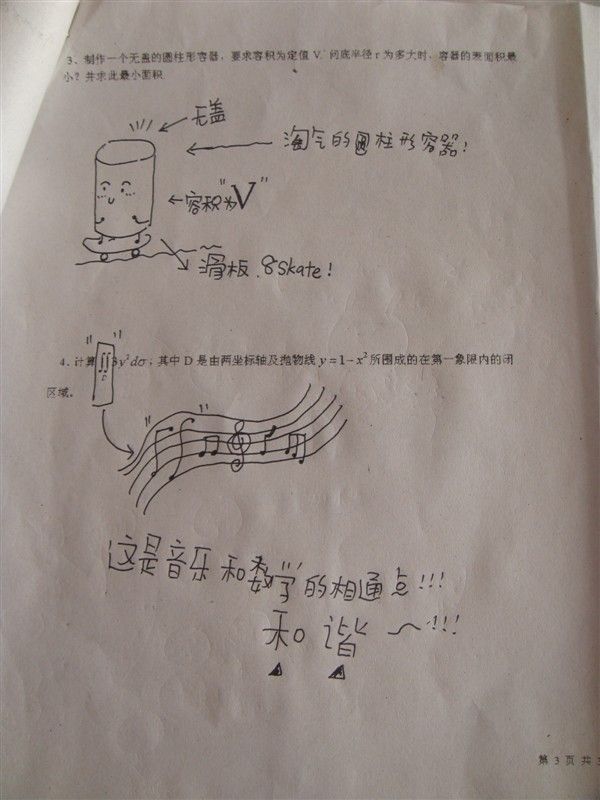 3、制作一个无盖的圆柱形容器，要求容积为定值 V，问底半径 r 为多大时，容器的表面积最
小？并求此最小面积.
无盖
淘气的圆柱形容器!
容积为"V"
滑板.8skate!
4、计算∬3y²dσ，其中 D 是由两坐标轴及抛物线 y=1-x² 所围成的在第一象限内的闭
D
区域。
这是音乐和数学的相通点!!!
和谐~!!!
第 3 页 共